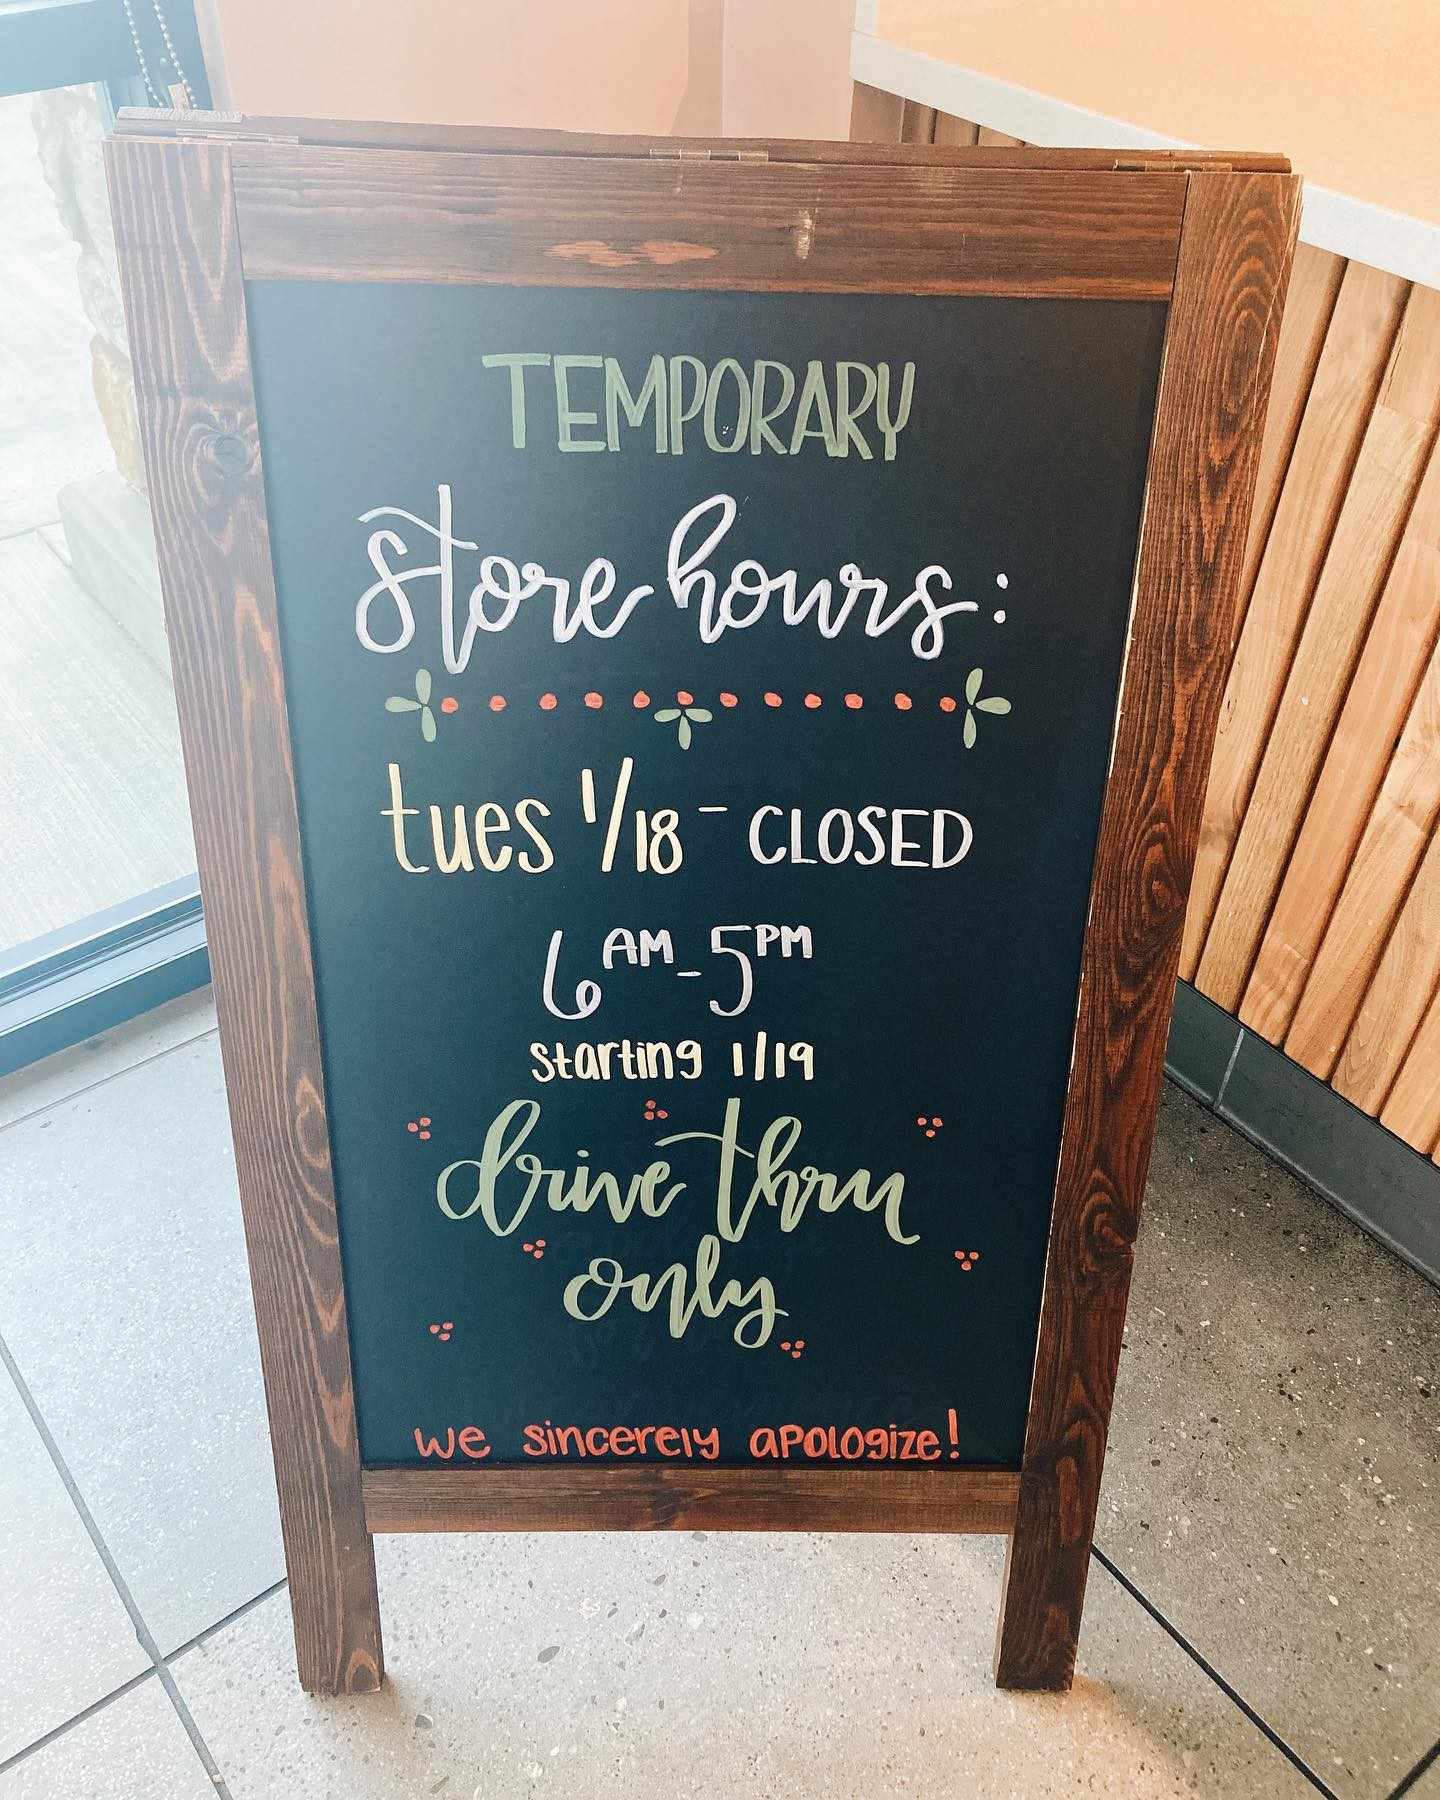 TEMPORARY
store hours:
tues 1/18 - CLOSED
6AM-5PM
starting 1/19
drive thru
only
we sincerely apologize!